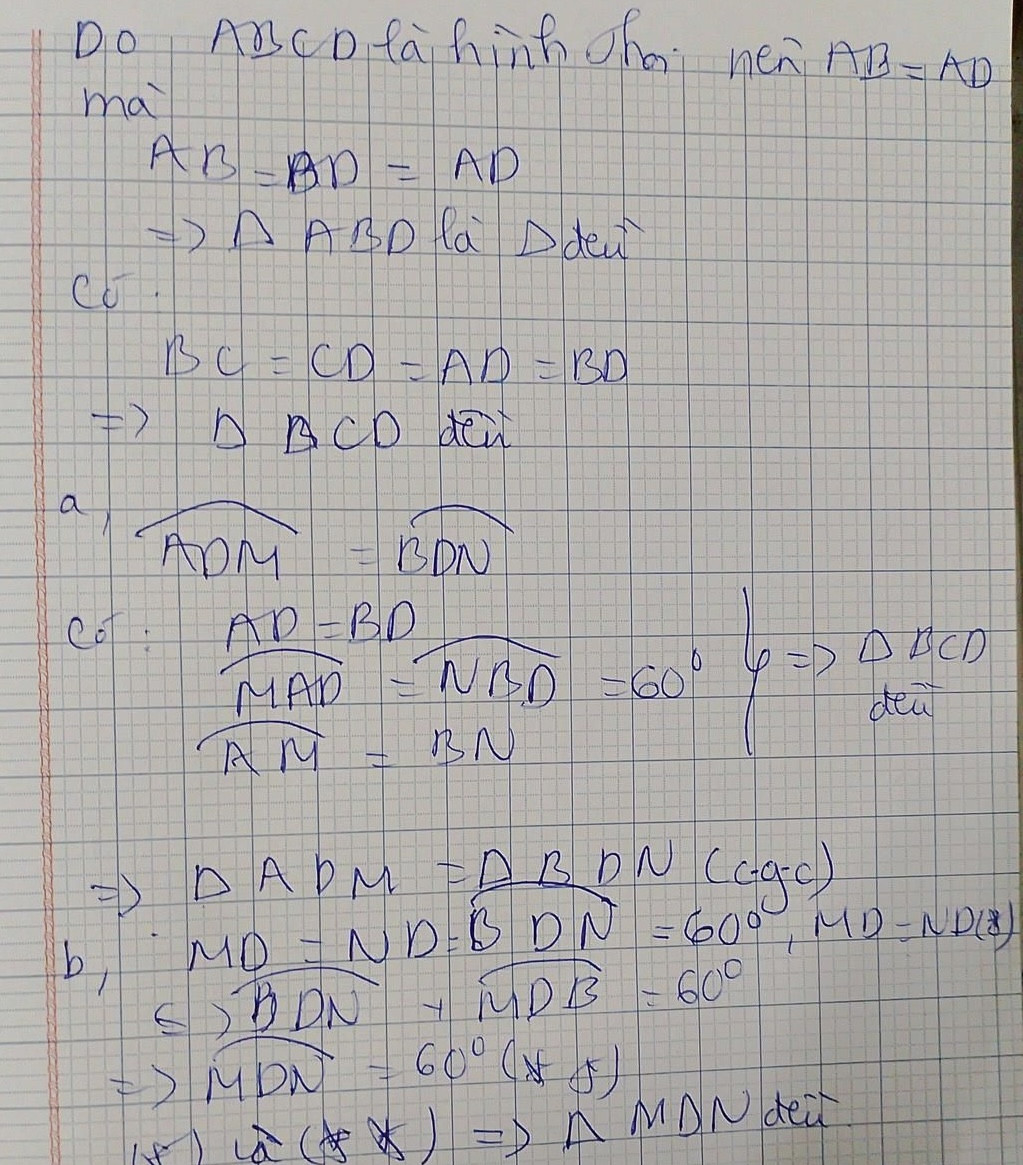 Do ABCD là hình thoi nên AB = AD
mà
AB = BD = AD
=> Δ ABD là Δ đều
Có:
BC = CD = AD = BD
=> Δ BCD đều
a,
ADM = BDN
Có: AD = BD
MAD = NBD = 60⁰ => Δ BCD
đều
AM = BN
=> Δ ADM = Δ BDN (c-g-c)
b, MD = ND BDN = 60⁰, MD = ND(*)
<=> BDN + MDB = 60⁰
=> MDN = 60⁰ (**)
(*) và (**) => Δ MDN đều